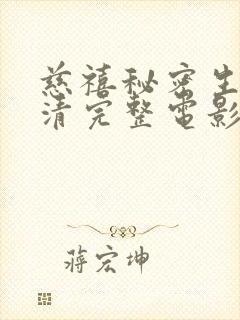 慈禧秘密生
清完整电影
蒋宏坤